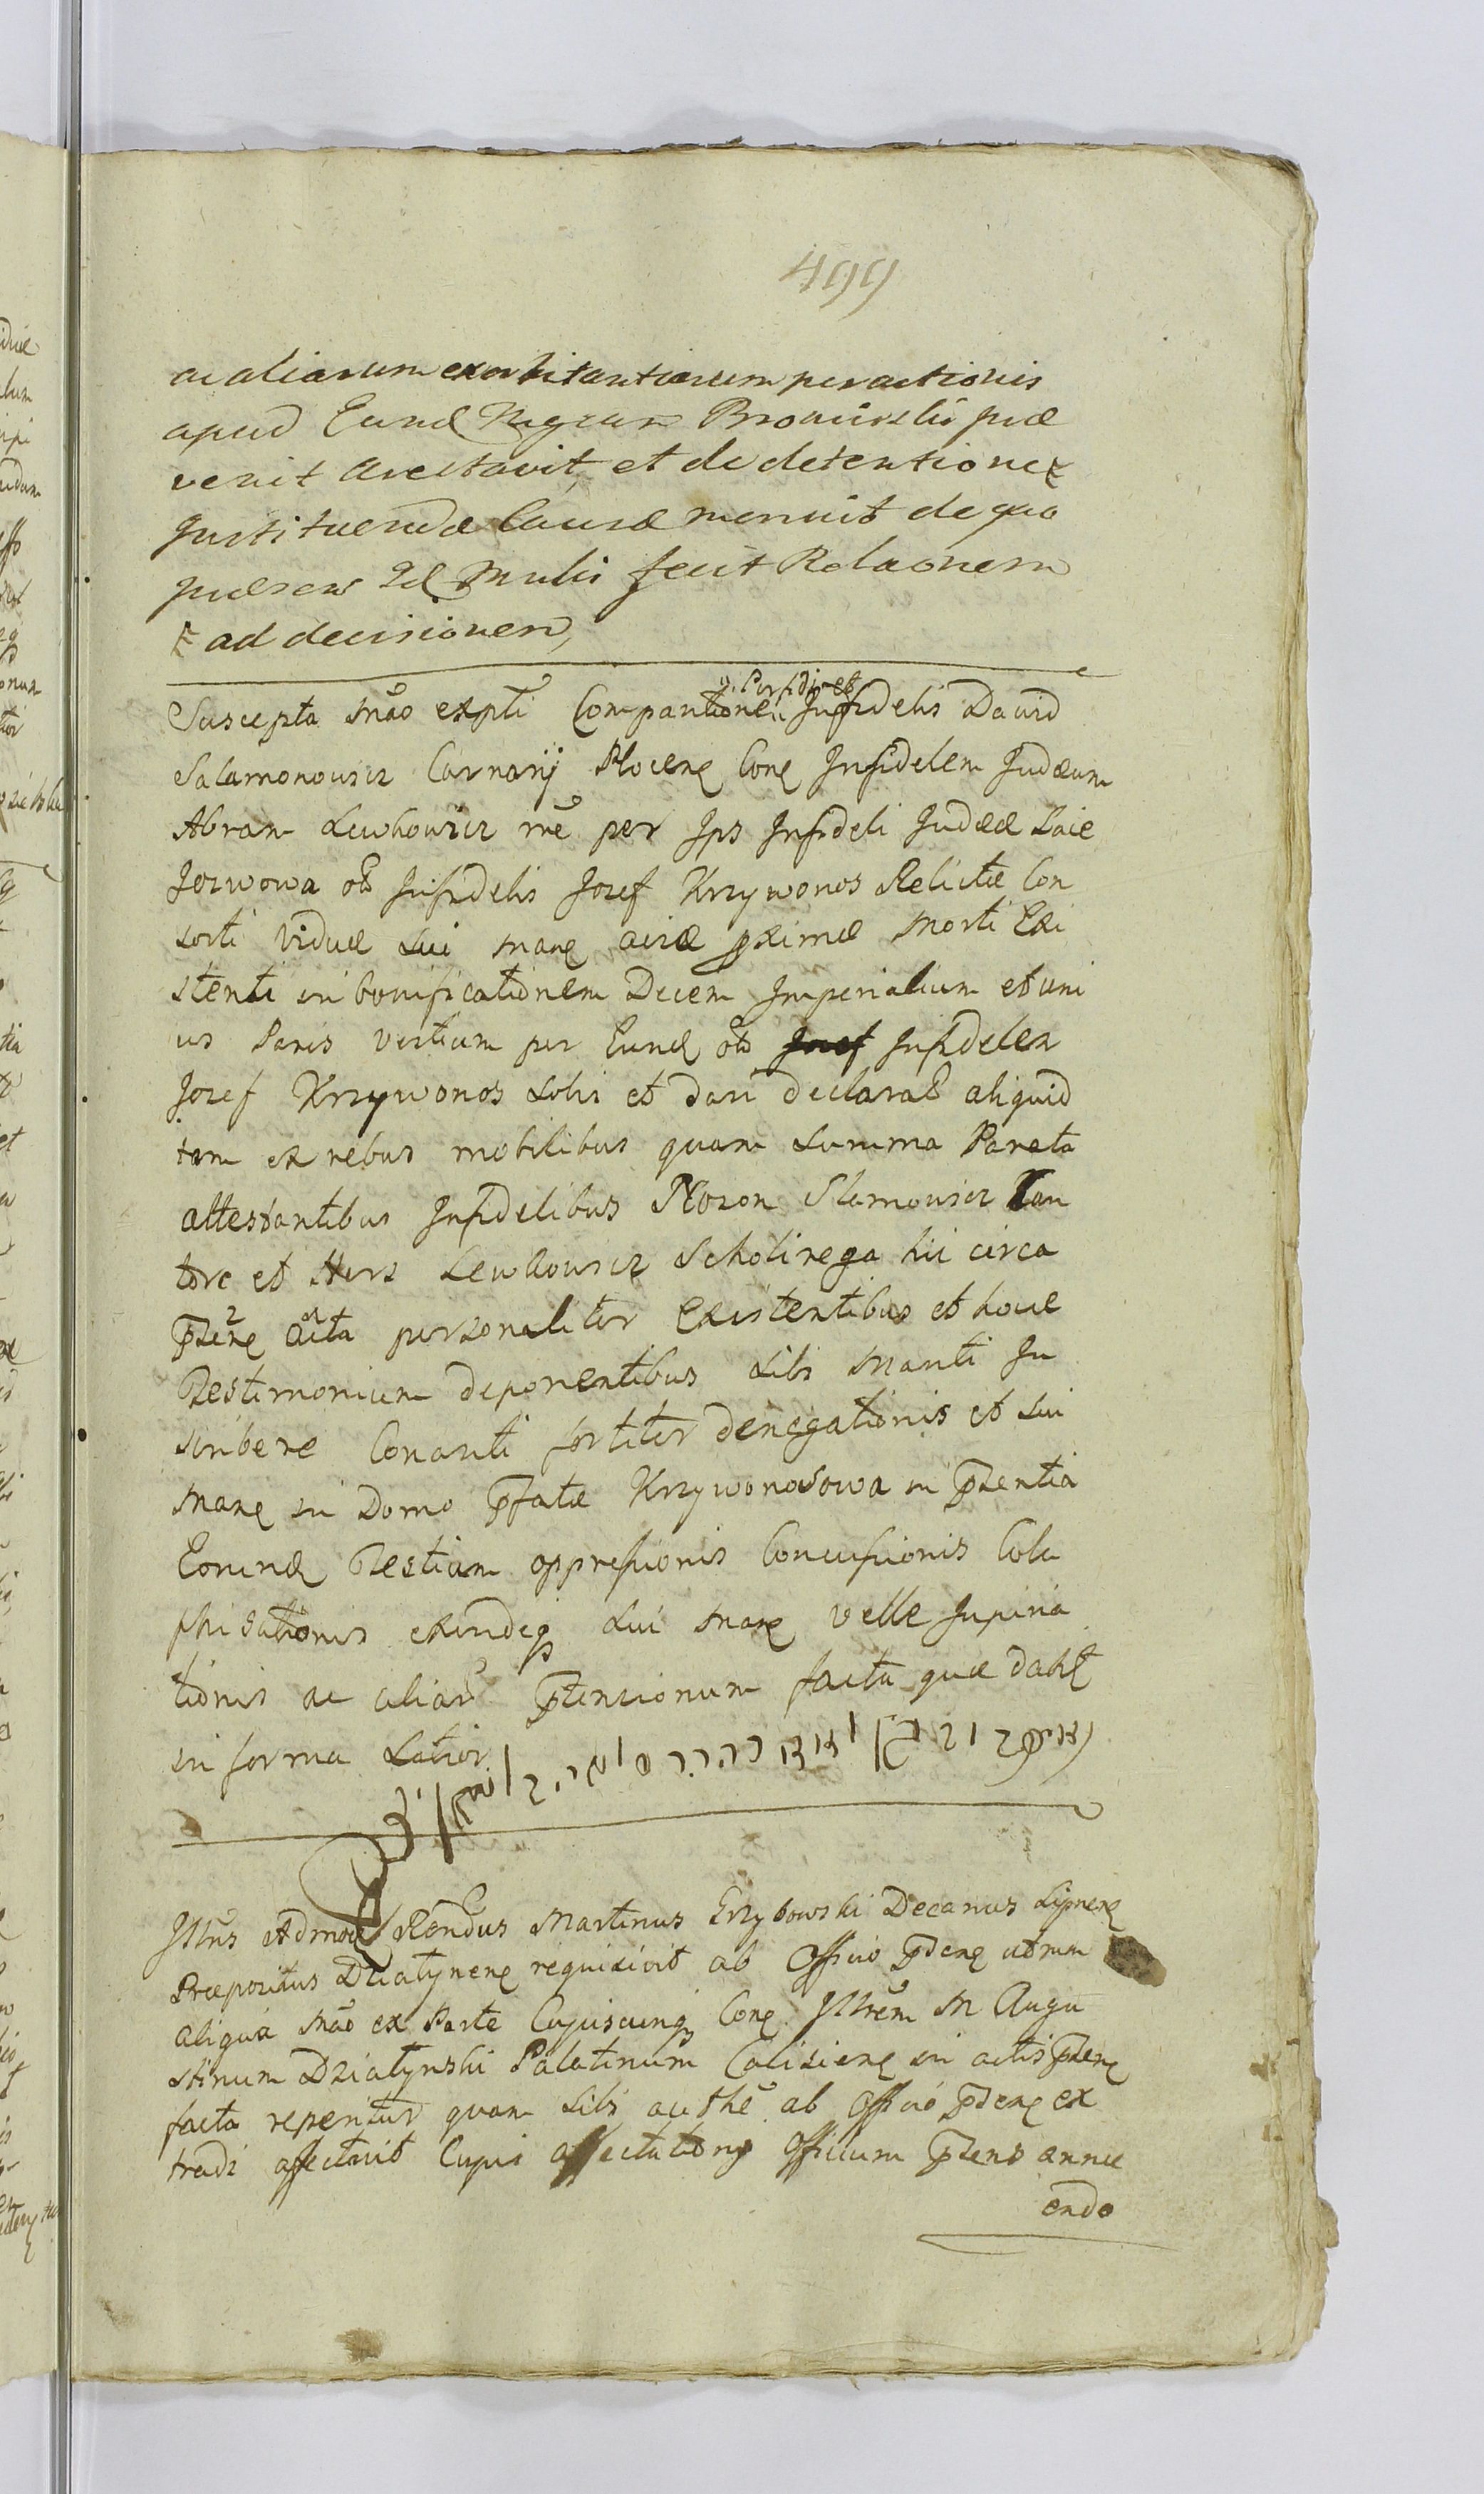 499
ac aliarum exorbitantiarum peractionis
apud Eund Ngrum Bromirski præ
venit arestavit, et de detentione
Justituendæ Causæ monuit de quo
præsens Jd Mnlis fecit Relaonem
ad decisionem,
Suscepta Mão expti Comparitione Perfidi et Jnfidelis David
Salamonowicz Carnarij Plocens Cone Jnfidelem Judæum
Abram Lewkowicz rne per Jps Jnfideli Judææ Laie
Jozwowa ob Jnfidelis Jozef Krzywonos Relictæ Con
sorti Viduæ Sui Mane acræ pximæ Morti Exi
stenti in bonificationem Decem Jmperialium et uni
us Paris Vestium per Eund ob Jnfidelem
Jozef Krzywonos Solvi et Dari declarat aliquid
tam ex rebus mobilibus quam Summa Parata
attestantibus Jnfidelibus Nozon Slamowicz Can
tore et Hers Lewkowicz Scholirega hic circa
Pzens acta personaliter Existentibus et hocce
Testimonium deponentibus Sibi Manti Jn
scribere Conanti fortiter denegationis et Sui
Mane in Domo Pfatæ Krzywonosowa in Pzentia
Eorund Testium oppressionis Concussionis Cola
phisationis exindeq Sui Mane velle Jnpiria
tionis ac aliar Ptensionum facta quæ dabit
in forma Latior
Jllrus Admod Rendus Martinus Grzybowski Decanus Lipnens
Præpositus Dziatynens requisivit ab Officio Pdene utrum
aliqua Mão ex Parte Cujuscunq Cone Jllrem M Augu
stinum Dziatynski Palatinum Calisiens in actis Pzens
facta reperitur quam Sibi authe ab Officio Pdene ex
tradi affectavit Cujus affectationi Officium Pzens annu
endo